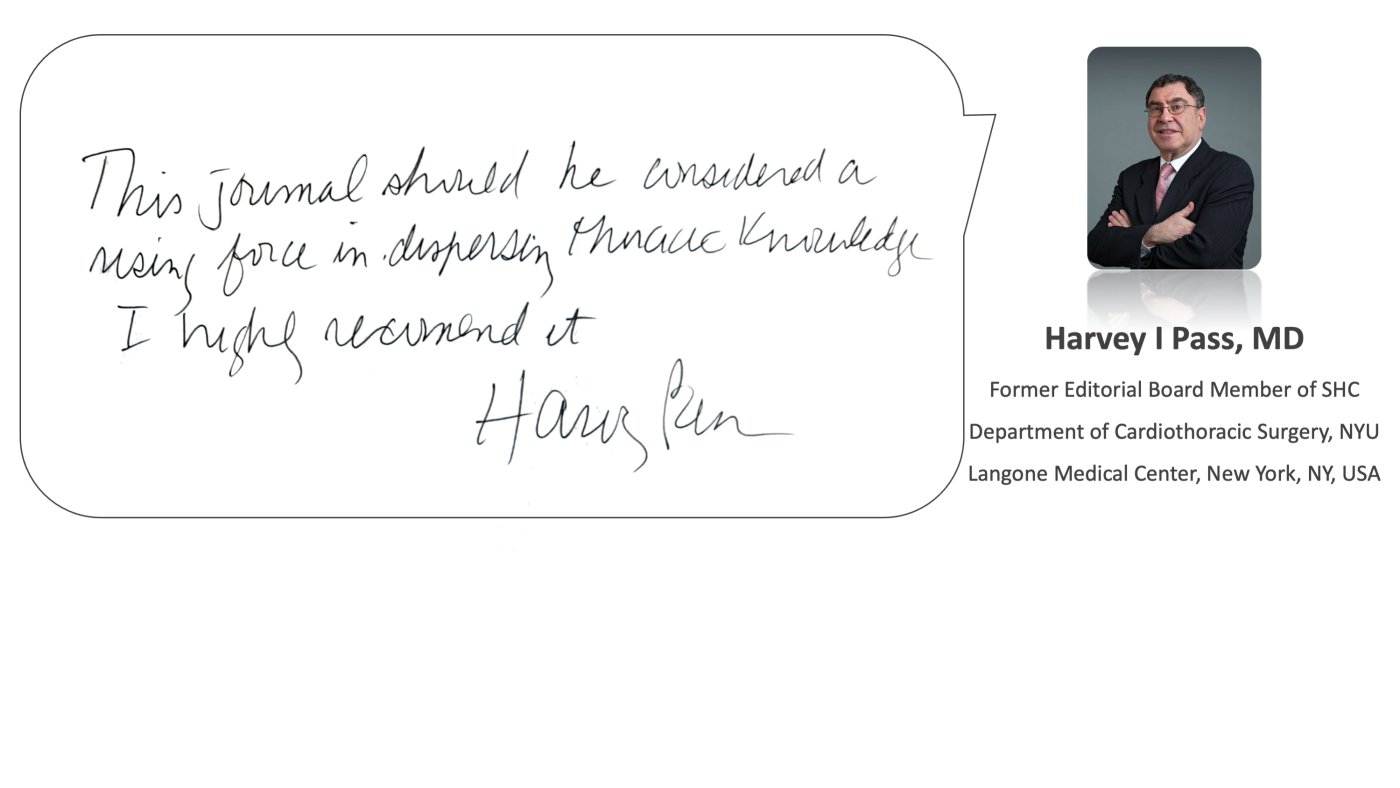 This journal should be considered a
rising force in dispersing thoracic Knowledge
I highly recommend it
Harvey Pass
Harvey I Pass, MD
Former Editorial Board Member of SHC
Department of Cardiothoracic Surgery, NYU
Langone Medical Center, New York, NY, USA